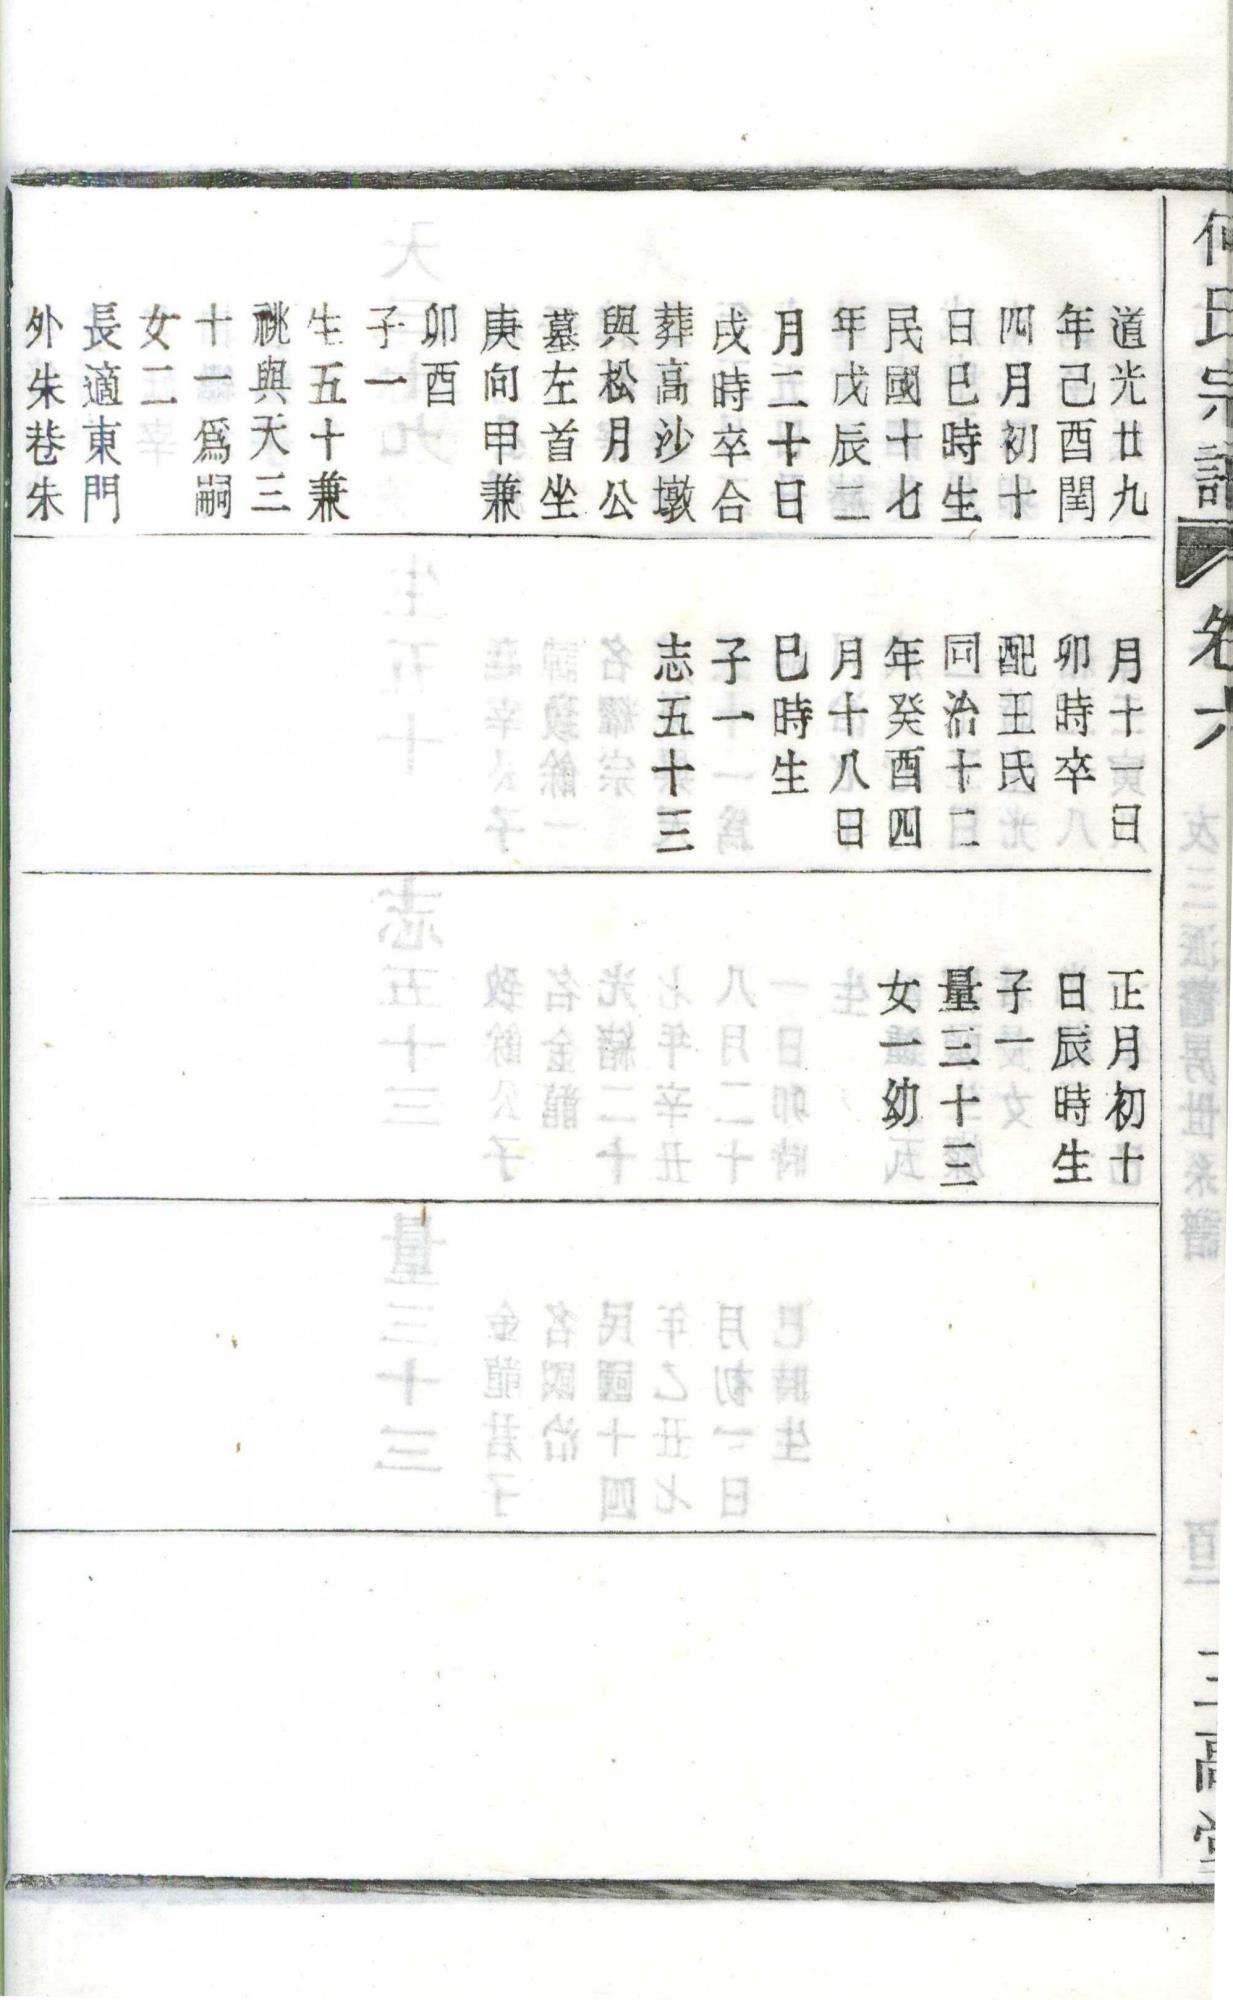 何氏宗譜
卷六
三高堂
道光廿九
年己酉閏
四月初十
日巳時生
民國十七
年戊辰二
月二十日
戌時卒合
葬高沙墩
與松月公
墓左首坐
庚向甲兼
卯酉
子一
生五十兼
祧與天三
十一爲嗣
女二
長適東門
外朱巷朱
月十一日
卯時卒
配王氏
同治十二
年癸酉四
月十八日
巳時生
子一
志五十三
正月初十
日辰時生
子一
量三十三
女一幼